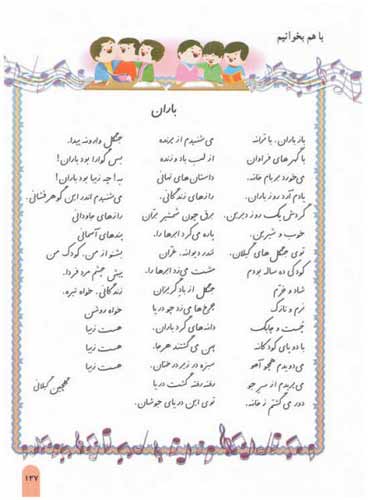 با هم بخوانیم
باران
باز باران، با ترانه
با گهرهای فراوان
می‌خورد بر بام خانه.
یادم آرد روز باران،
گردش یک روز دیرین،
خوب و شیرین،
توی جنگل‌های گیلان.
کودکی ده ساله بودم
شاد و خرّم
نرم و نازک
چست و چابک
با دو پای کودکانه
می‌دویدم همچو آهو
می‌پریدم از سر جو
دور می‌گشتم ز خانه.
می‌شنیدم از پرنده
از لب باد وزنده
داستان‌های نهانی
رازهای زندگانی.
برق چون شمشیر برّان
پاره می‌کرد ابرها را.
تندر دیوانه، غرّان
مشت می‌زد ابرها را.
جنگل از باد گریزان
چرخ‌ها می‌زد چو دریا
دانه‌های گرد باران،
پهن می‌گشتند هر جا.
سبزه در زیر درختان،
رفته رفته گشت دریا
توی این دریای جوشان،
جنگل وارونه پیدا.
بس گوارا بود باران!
به! چه زیبا بود باران!
می‌شنیدم اندر این گوهرفشانی،
رازهای جاودانی
پندهای آسمانی
بشنو از من، کودک من
پیش چشم مرد فردا،
زندگانی، خواه تیره،
خواه روشن
هست زیبا
هست زیبا
هست زیبا
گلچین گیلانی
۱۲۷